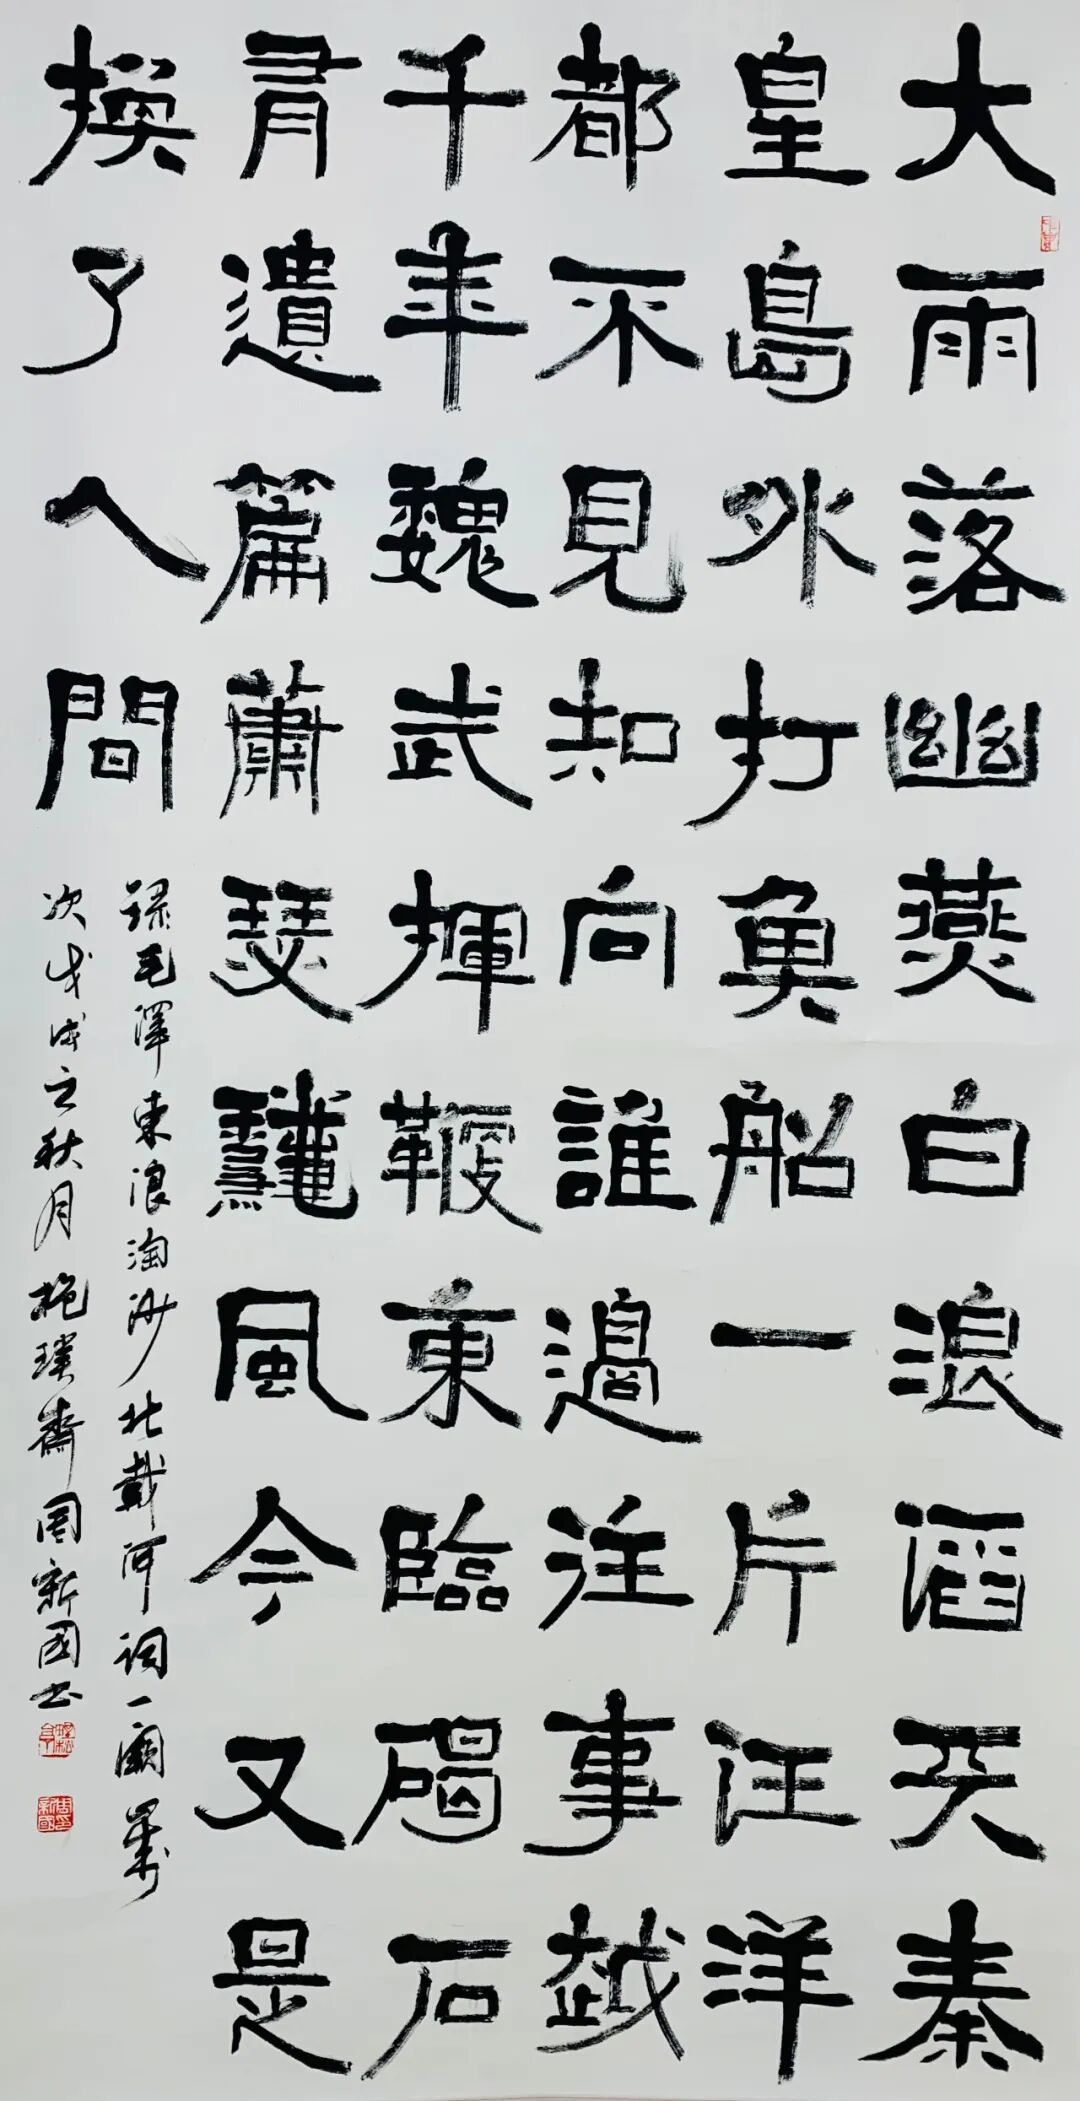 大雨落幽燕白浪滔天秦
皇島外打魚船一片汪洋
都不見知向誰邊往事越
千年魏武揮鞭東臨碣石
有遺篇蕭瑟龝風今又是
換了人間
錄毛澤東浪淘沙北戴河詞一闋歲
次戊戌之秋月抱璞齋周新國書